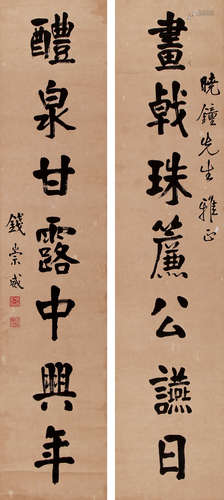 畫戟珠簾公讌日
曉鐘先生雅正
醴泉甘露中興年
錢崇威